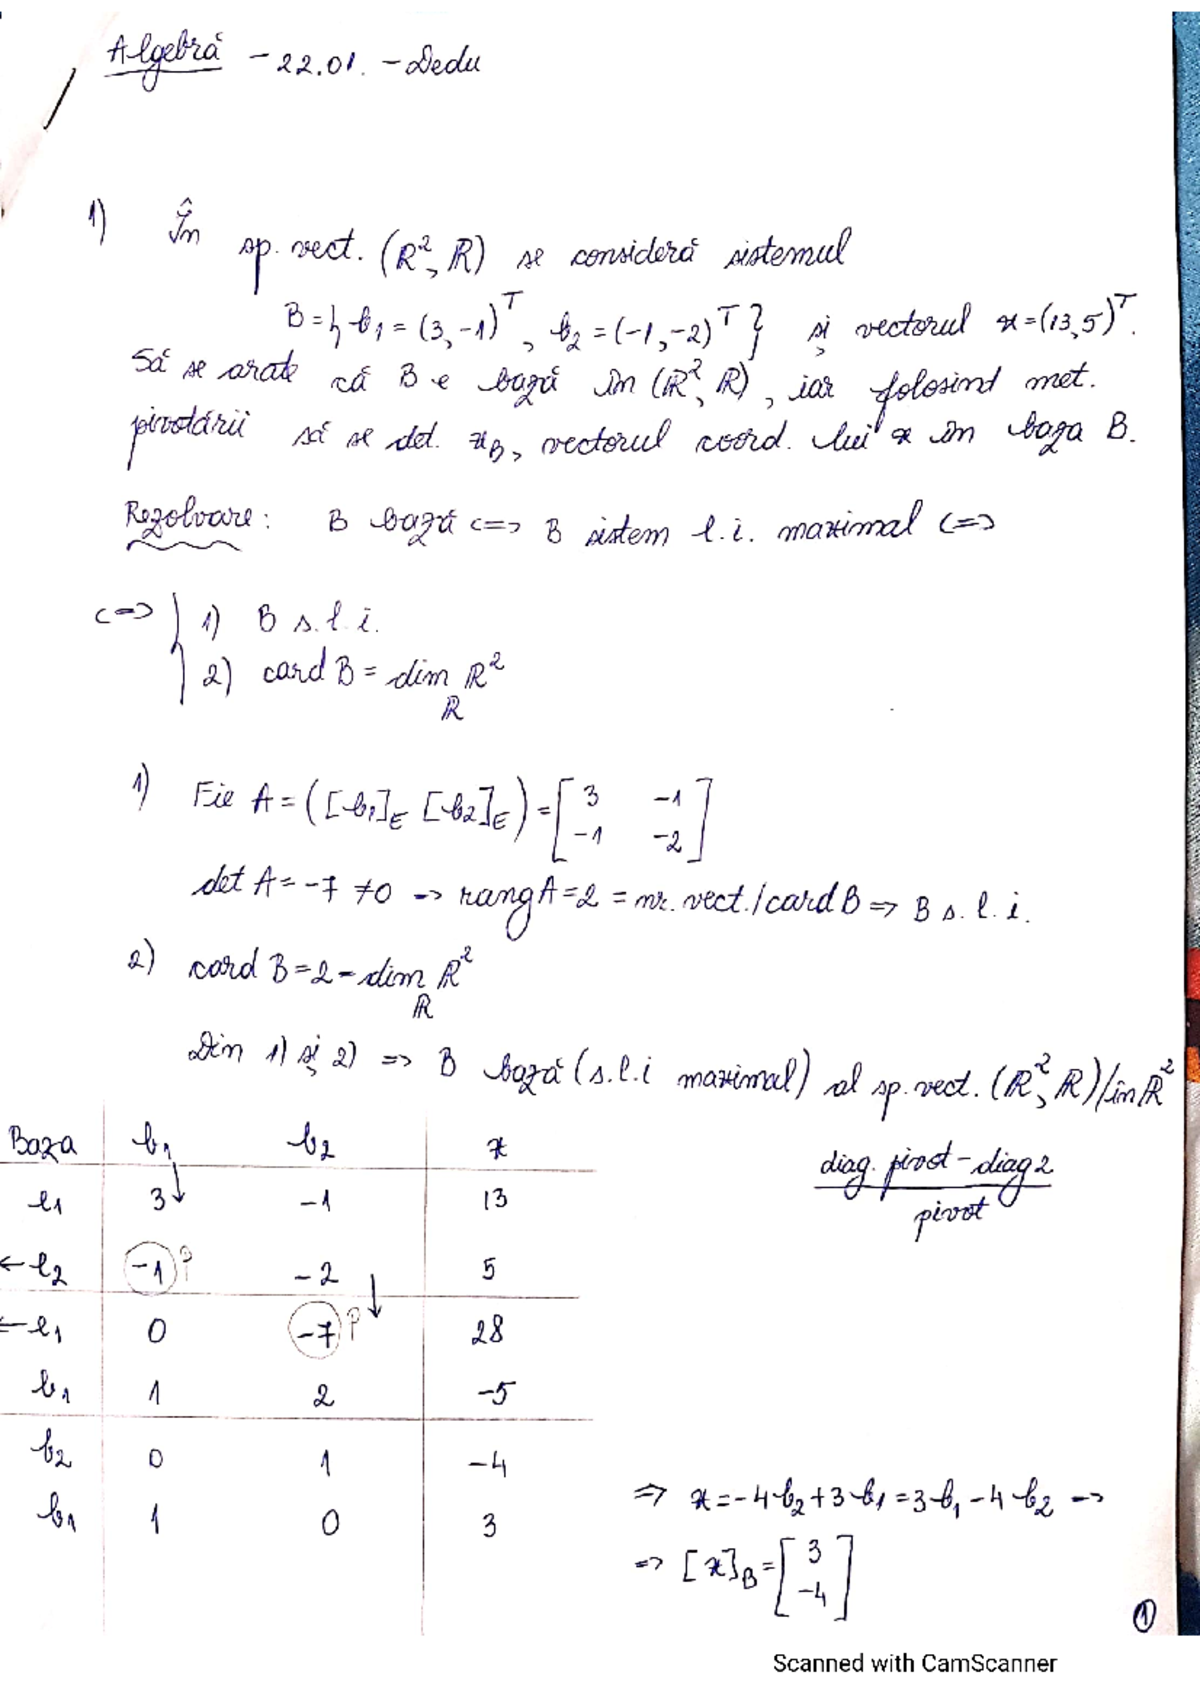 Algebră - 22.01. - Dedu
1) În sp. vect. (ℝ², ℝ) se consideră sistemul
B = { b₁ = (3, -1)ᵀ, b₂ = (-1, -2)ᵀ } și vectorul x = (13, 5)ᵀ.
Să se arate că B e bază în (ℝ², ℝ), iar folosind met.
pivotării să se det. x_B, vectorul coord. lui x în baza B.
Rezolvare: B bază <=> B sistem l.i. maximal <=>
<=> { 1) B s.l.i.
2) card B = dim ℝ²
ℝ
1) Fie A = ([b₁]_E [b₂]_E) = [ 3 -1
-1 -2 ]
det A = -7 ≠ 0 => rang A = 2 = nr. vect. / card B => B s.l.i.
2) card B = 2 = dim ℝ²
ℝ
Din 1) și 2) => B bază (s.l.i maximal) al sp. vect. (ℝ², ℝ) / în ℝ²
Baza b₁ b₂ x
e₁ 3 ↓ -1 13
← e₂ -1 P -2 5
← e₁ 0 -7 P ↓ 28
b₁ 1 2 -5
b₂ 0 1 -4
b₁ 1 0 3
diag. pivot - diag 2
pivot
=> x = -4b₂ + 3b₁ = 3b₁ - 4b₂ =>
=> [x]_B = [ 3
-4 ]
①
Scanned with CamScanner